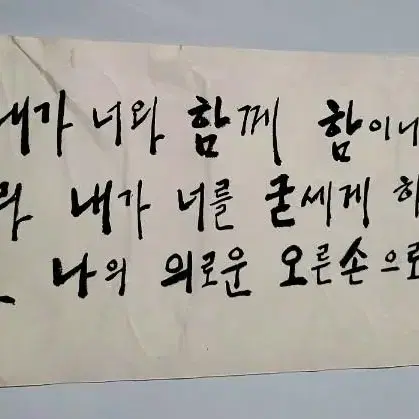 내가 너와 함께 함이니
라 내가 너를 굳세게 하
나의 의로운 오른손으로